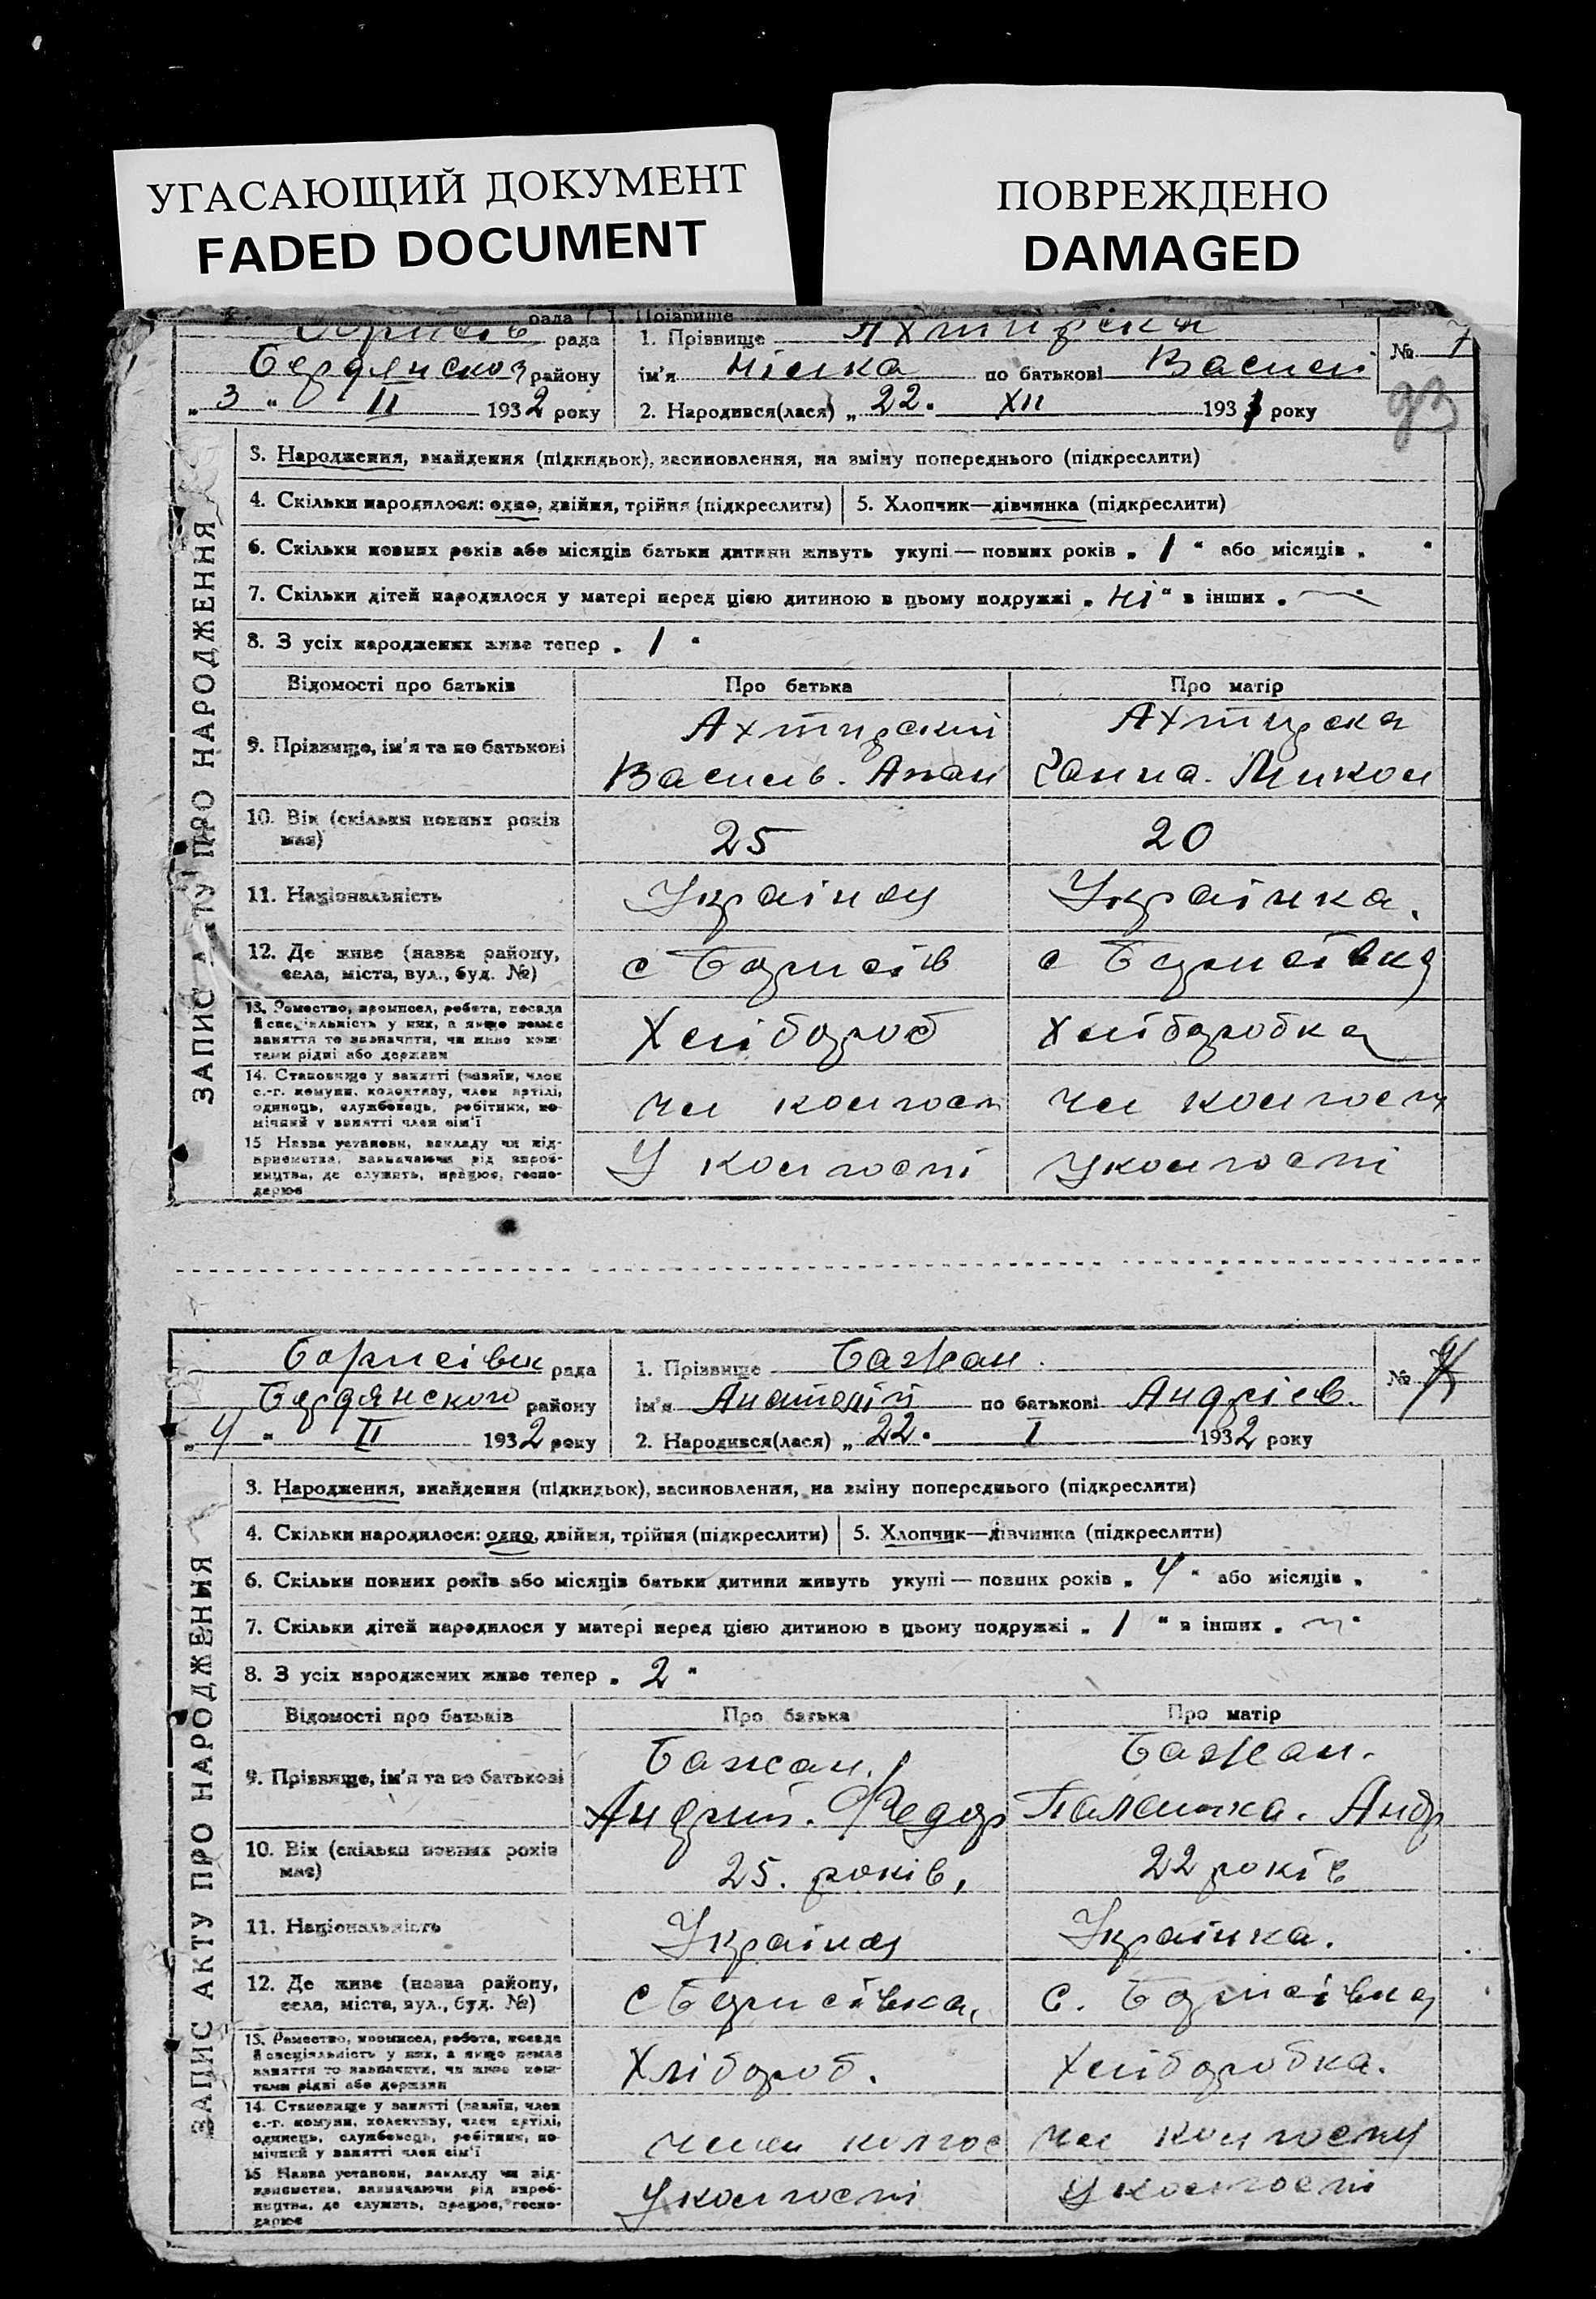 УГАСАЮЩИЙ ДОКУМЕНТ
FADED DOCUMENT
ПОВРЕЖДЕНО
DAMAGED
рада 1. Прізвище
рада 1. Прізвище Ахтирска № 7
Бердянског району ім'я Нінка по батькові Васил
„3“ II 1932 року 2. Народився(лася) „22. XII 1931 року 93
ЗАПИС АКТУ ПРО НАРОДЖЕННЯ
3. Народження, знайдення (підкидьок), засиновлення, на зміну попереднього (підкреслити)
4. Скільки народилося: одно, двійня, трійня (підкреслити) 5. Хлопчик—дівчинка (підкреслити)
6. Скільки повних років або місяців батьки дитини живуть укупі — повних років „1“ або місяців „ “
7. Скільки дітей народилося у матері перед цією дитиною в цьому подружжі „ні“ в інших „—“
8. З усіх народжених живе тепер „1“
Відомості про батьків Про батька Про матір
9. Прізвище, ім'я та по батькові Ахтирский Ахтирска
Василь. Апан Ганна. Микол
10. Вік (скільки повних років має) 25 20
11. Національність Українец Українка.
12. Де живе (назва району, села, міста, вул., буд. №) с Борисів с Борисівка
13. Ремество, промисел, робота, посада й спеціяльність у них, а якщо немає заняття то зазначити, чи живе коштами рідні або держави Хлібороб Хліборобка
14. Становище у занятті (хазяїн, член с.-г. комуни, колективу, член артілі, одинець, службовець, робітник, помічний у занятті член сім'ї чл колгосп чл колгосп
15 Назва установи, закладу чи підприємства, зазначаючи рід виробництва, де служить, працює, господарює У колгоспі У колгоспі
Борисівск рада 1. Прізвище Бажан. №
Бердянского району ім'я Анатолій по батькові Андріев.
„4“ II 1932 року 2. Народився(лася) „22. I 1932 року
ЗАПИС АКТУ ПРО НАРОДЖЕННЯ
3. Народження, знайдення (підкидьок), засиновлення, на зміну попереднього (підкреслити)
4. Скільки народилося: одно, двійня, трійня (підкреслити) 5. Хлопчик—дівчинка (підкреслити)
6. Скільки повних років або місяців батьки дитини живуть укупі — повних років „4“ або місяців „
7. Скільки дітей народилося у матері перед цією дитиною в цьому подружжі „1“ в інших „—“
8. З усіх народжених живе тепер „2“
Відомості про батьків Про батька Про матір
9. Прізвище, ім'я та по батькові Бажан. Бажан.
Андрий. Федор Палашка. Андр
10. Вік (скільки повних років має) 25. років, 22 років
11. Національність Українец Українка.
12. Де живе (назва району, села, міста, вул., буд. №) с Борисівка, с. Борисівка
13. Ремество, промисел, робота, посада й спеціяльність у них, а якщо немає заняття то зазначити, чи живе коштами рідні або держави Хлібороб. Хліборобка.
14. Становище у занятті (хазяїн, член с.-г. комуни, колективу, член артілі, одинець, службовець, робітник, помічний у занятті член сім'ї член колгос чл колгоспу
15 Назва установи, закладу чи підприємства, зазначаючи рід виробництва, де служить, працює, господарює У колгоспі У колгоспі